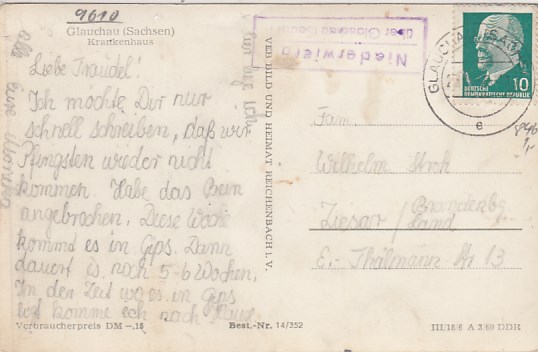 9610
Glauchau (Sachsen)
Krankenhaus
Liebe Traudel!
Ich möchte Dir nur
schnell schreiben, daß wir
Pfingsten wieder nicht
kommen. Habe das Bein
angebrochen, Diese Woche
kommt es in Gips. Dann
dauert es noch 5-6 Wochen.
In der Zeit wo es in Gips
ist komme ich nach Hause.
Verbraucherpreis DM -.15
Best.-Nr. 14/352
VEB BILD UND HEIMAT REICHENBACH I. V.
Niederwiera
über Glauchau
GLAUCHAU
10
DEUTSCHE
DEMOKRATISCHE REPUBLIK
e
Fam.
Wilhelm Stroh
Ziesar / Brandenbg.
Land
E.-Thälmann Str 13
III/18/6 A 3/60 DDR